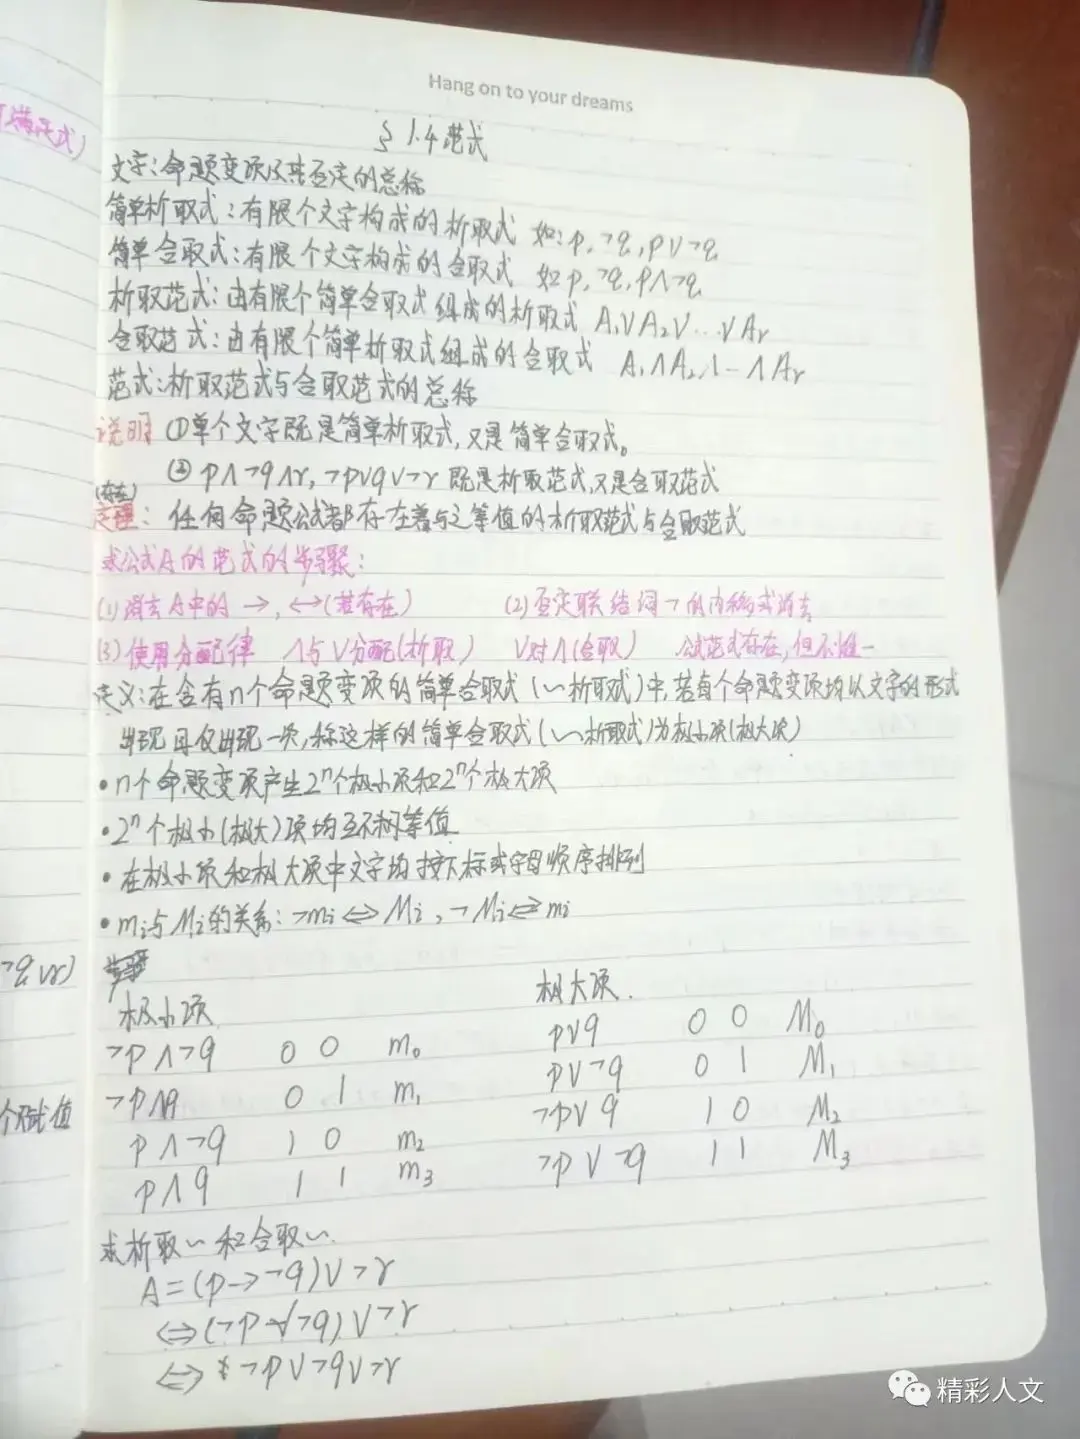 Hang on to your dreams
§ 1.4 范式
文字:命题变项及其否定的总称
简单析取式:有限个文字构成的析取式 如:p,¬q,p∨¬q
简单合取式:有限个文字构成的合取式 如p,¬q,p∧¬q
析取范式:由有限个简单合取式组成的析取式 A₁∨A₂∨…∨Aᵣ
合取范式:由有限个简单析取式组成的合取式 A₁∧A₂∧…∧Aᵣ
范式:析取范式与合取范式的总称
说明 ①单个文字既是简单析取式,又是简单合取式。
② p∧¬q∧r,¬p∨q∨¬r 既是析取范式,又是合取范式
(存在)
定理:任何命题公式都存在着与之等值的析取范式与合取范式
求公式A的范式的步骤:
(1)消去A中的→,↔(若存在) (2)否定联结词¬的内移或消去
(3)使用分配律 ∧与∨分配(析取) ∨对∧(合取) 公式范式存在,但不惟一
定义:在含有n个命题变项的简单合取式(~析取式)中,若每个命题变项均以文字的形式
出现且仅出现一次,称这样的简单合取式(~析取式)为极小项(极大项)
•n个命题变项产生2ⁿ个极小项和2ⁿ个极大项
•2ⁿ个极小(极大)项均互不相等值
•在极小项和极大项中文字均按下标或字母顺序排列
•mᵢ与Mᵢ的关系:¬mᵢ⇔Mᵢ,¬Mᵢ⇔mᵢ
极小项 极大项.
¬p∧¬q 0 0 m₀ p∨q 0 0 M₀
¬p∧q 0 1 m₁ p∨¬q 0 1 M₁
p∧¬q 1 0 m₂ ¬p∨q 1 0 M₂
p∧q 1 1 m₃ ¬p∨¬q 1 1 M₃
求析取~和合取~.
A=(p→¬q)∨¬r
⇔(¬p∨¬q)∨¬r
⇔¬p∨¬q∨¬r
¬q∨r)
个赋值
精彩人文